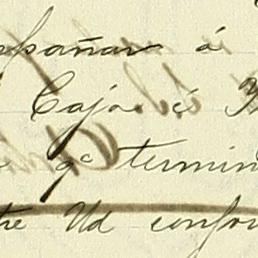 españar á
Cajas á
qe termin
tre Ud confor